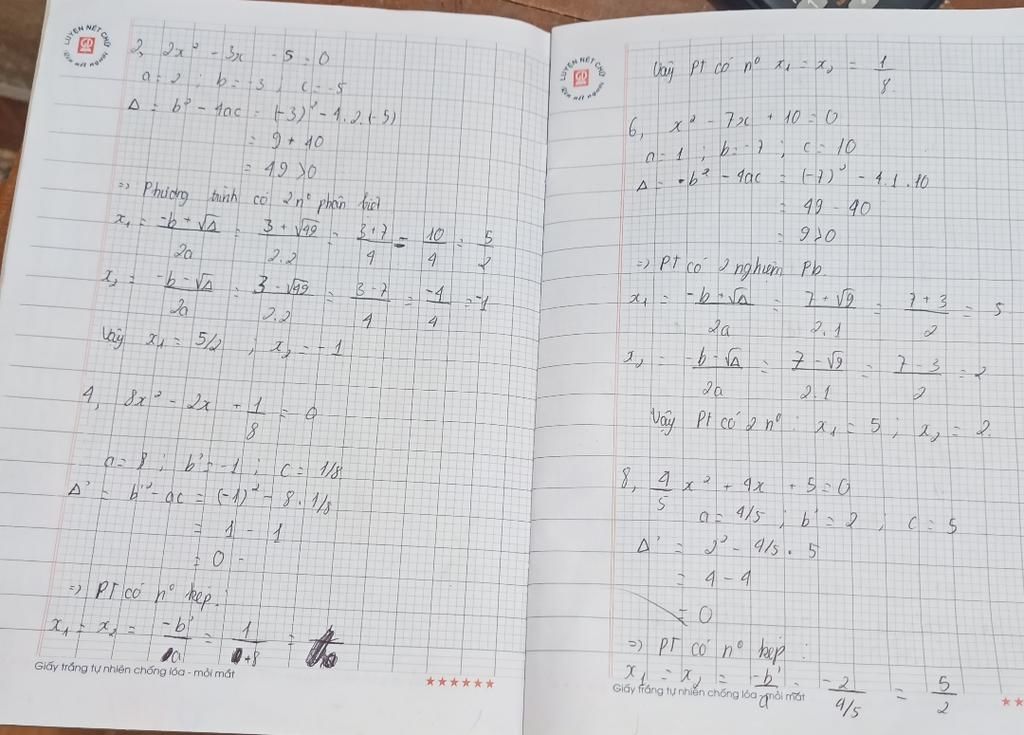 LUYỆN NÉT CHỮ
Rèn nết người
2, 2x² - 3x - 5 = 0
a = 2 ; b = -3 ; c = -5
Δ = b² - 4ac = (-3)² - 4.2.(-5)
= 9 + 40
= 49 > 0
=> Phương trình có 2 n⁰ phân biệt
x₁ = (-b + √Δ)/2a = (3 + √49)/2.2 = (3+7)/4 = 10/4 = 5/2
x₂ = (-b - √Δ)/2a = (3 - √49)/2.2 = (3-7)/4 = -4/4 = -1
Vậy x₁ = 5/2 ; x₂ = -1
4, 8x² - 2x + 1/8 = 0
a = 8 ; b' = -1 ; c = 1/8
Δ' = b'² - ac = (-1)² - 8.1/8
= 1 - 1
= 0
=> PT có n⁰ kép:
x₁ = x₂ = -b'/a = 1/8 =
Giấy trắng tự nhiên chống lóa - mỏi mắt
LUYỆN NÉT CHỮ
Rèn nết người
Vậy PT có n⁰ x₁ = x₂ = 1/8
6, x² - 7x + 10 = 0
a = 1 ; b = -7 ; c = 10
Δ = b² - 4ac = (-7)² - 4.1.10
= 49 - 40
= 9 > 0
=> PT có 2 nghiệm Pb
x₁ = (-b + √Δ)/2a = (7 + √9)/2.1 = (7 + 3)/2 = 5
x₂ = (-b - √Δ)/2a = (7 - √9)/2.1 = (7 - 3)/2 = 2
Vậy PT có 2 n⁰ : x₁ = 5 ; x₂ = 2.
8, 4/5 x² + 4x + 5 = 0
a = 4/5 ; b' = 2 ; c = 5
Δ' = 2² - 4/5 . 5
= 4 - 4
= 0
=> PT có n⁰ kép :
x₁ = x₂ = -b'/a = -2/(4/5) = 5/2
Giấy trắng tự nhiên chống lóa - mỏi mắt